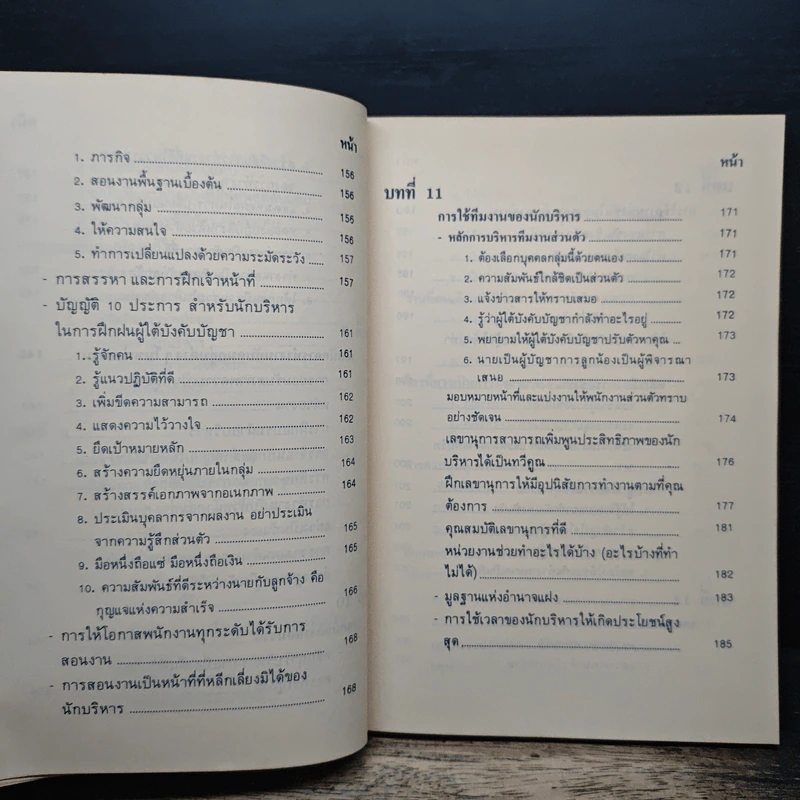 หน้า
1. ภารกิจ 156
2. สอนงานพื้นฐานเบื้องต้น 156
3. พัฒนากลุ่ม 156
4. ให้ความสนใจ 156
5. ทำการเปลี่ยนแปลงด้วยความระมัดระวัง 157
- การสรรหา และการฝึกเจ้าหน้าที่ 157
- บัญญัติ 10 ประการ สำหรับนักบริหาร
ในการฝึกฝนผู้ใต้บังคับบัญชา 161
1. รู้จักคน 161
2. รู้แนวปฏิบัติที่ดี 161
3. เพิ่มขีดความสามารถ 162
4. แสดงความไว้วางใจ 162
5. ยึดเป้าหมายหลัก 163
6. สร้างความยืดหยุ่นภายในกลุ่ม 164
7. สร้างสรรค์เอกภาพจากอเนกภาพ 164
8. ประเมินบุคลากรจากผลงาน อย่าประเมิน
จากความรู้สึกส่วนตัว 165
9. มือหนึ่งถือแซ่ มือหนึ่งถือเงิน 165
10. ความสัมพันธ์ที่ดีระหว่างนายกับลูกจ้าง คือ
กุญแจแห่งความสำเร็จ 166
- การให้โอกาสพนักงานทุกระดับได้รับการ
สอนงาน 168
- การสอนงานเป็นหน้าที่ที่หลีกเลี่ยงมิได้ของ
นักบริหาร 168
หน้า
บทที่ 11
การใช้ทีมงานของนักบริหาร 171
- หลักการบริหารทีมงานส่วนตัว 171
1. ต้องเลือกบุคคลกลุ่มนี้ด้วยตนเอง 171
2. ความสัมพันธ์ใกล้ชิดเป็นส่วนตัว 172
3. แจ้งข่าวสารให้ทราบเสมอ 172
4. รู้ว่าผู้ใต้บังคับบัญชากำลังทำอะไรอยู่ 172
5. พยายามให้ผู้ใต้บังคับบัญชาปรับตัวหาคุณ 173
6. นายเป็นผู้บัญชาการลูกน้องเป็นผู้พิจารณา
เสนอ 173
มอบหมายหน้าที่และแบ่งงานให้พนักงานส่วนตัวทราบ
อย่างชัดเจน 174
เลขานุการสามารถเพิ่มพูนประสิทธิภาพของนัก
บริหารได้เป็นทวีคูณ 176
ฝึกเลขานุการให้มีอุปนิสัยการทำงานตามที่คุณ
ต้องการ 177
คุณสมบัติเลขานุการที่ดี 181
หน่วยงานช่วยทำอะไรได้บ้าง (อะไรบ้างที่ทำ
ไม่ได้) 182
- มูลฐานแห่งอำนาจแฝง 183
- การใช้เวลาของนักบริหารให้เกิดประโยชน์สูง
สุด 185